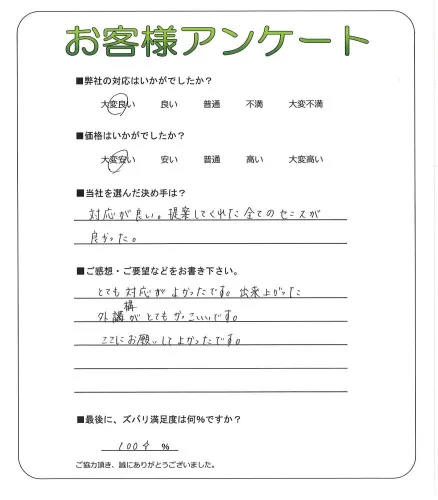 お客様アンケート
■弊社の対応はいかがでしたか？
大変良い 良い 普通 不満 大変不満
■価格はいかがでしたか？
大変安い 安い 普通 高い 大変高い
■当社を選んだ決め手は？
対応が良い。提案してくれた全てのセンスが
良かった。
■ご感想・ご要望などをお書き下さい。
とても対応がよかったです。出来上がった
構
外講がとてもかっこいいです。
ここにお願いしてよかったです。
■最後に、ズバリ満足度は何％ですか？
100 %
ご協力頂き、誠にありがとうございました。